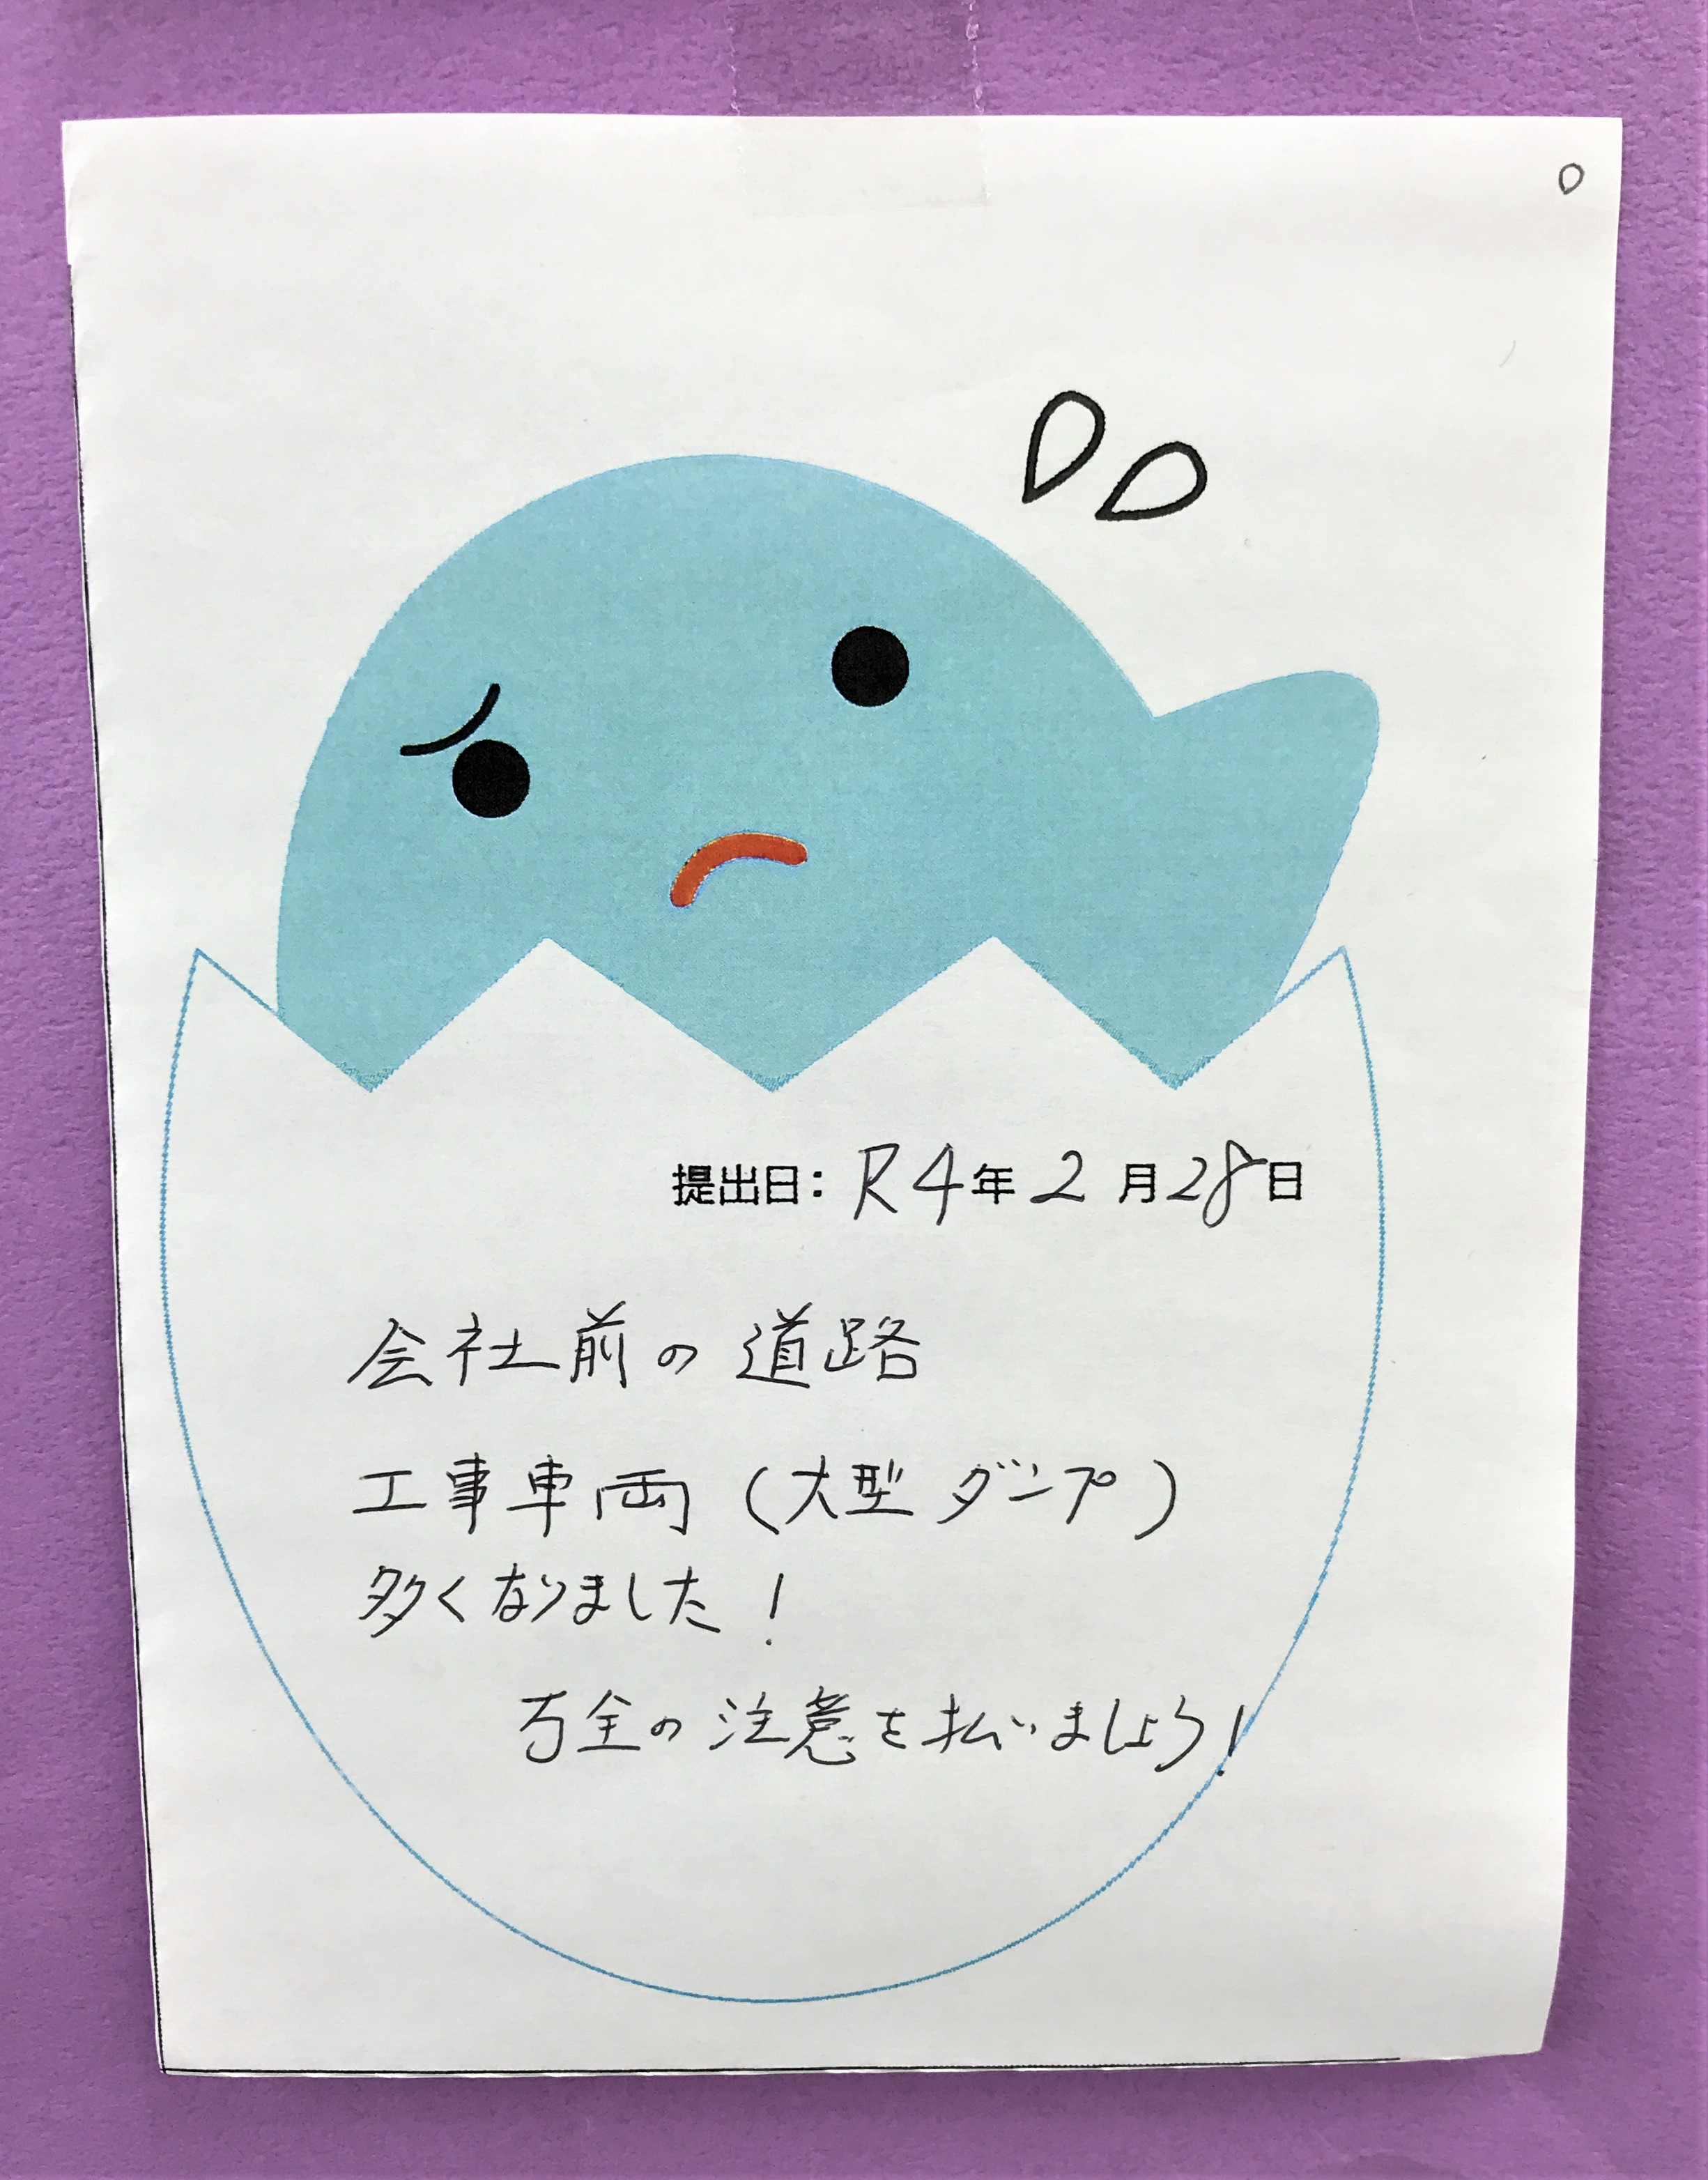 提出日: R4年2月28日
会社前の道路
工事車両(大型ダンプ)
多くなりました!
万全の注意を払いましょう!